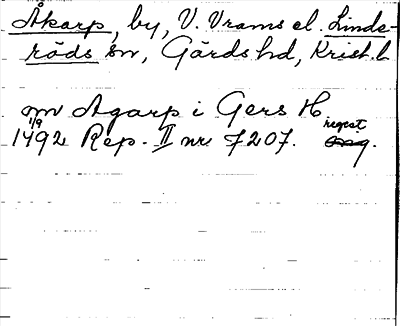 Åkarp, by, V. Vrams el. Linde-
röds sn, Gärds hd, Krist. l.
m Agarp i Gers H
1/9 regest
1492 Rep. II nr 7207. orig.